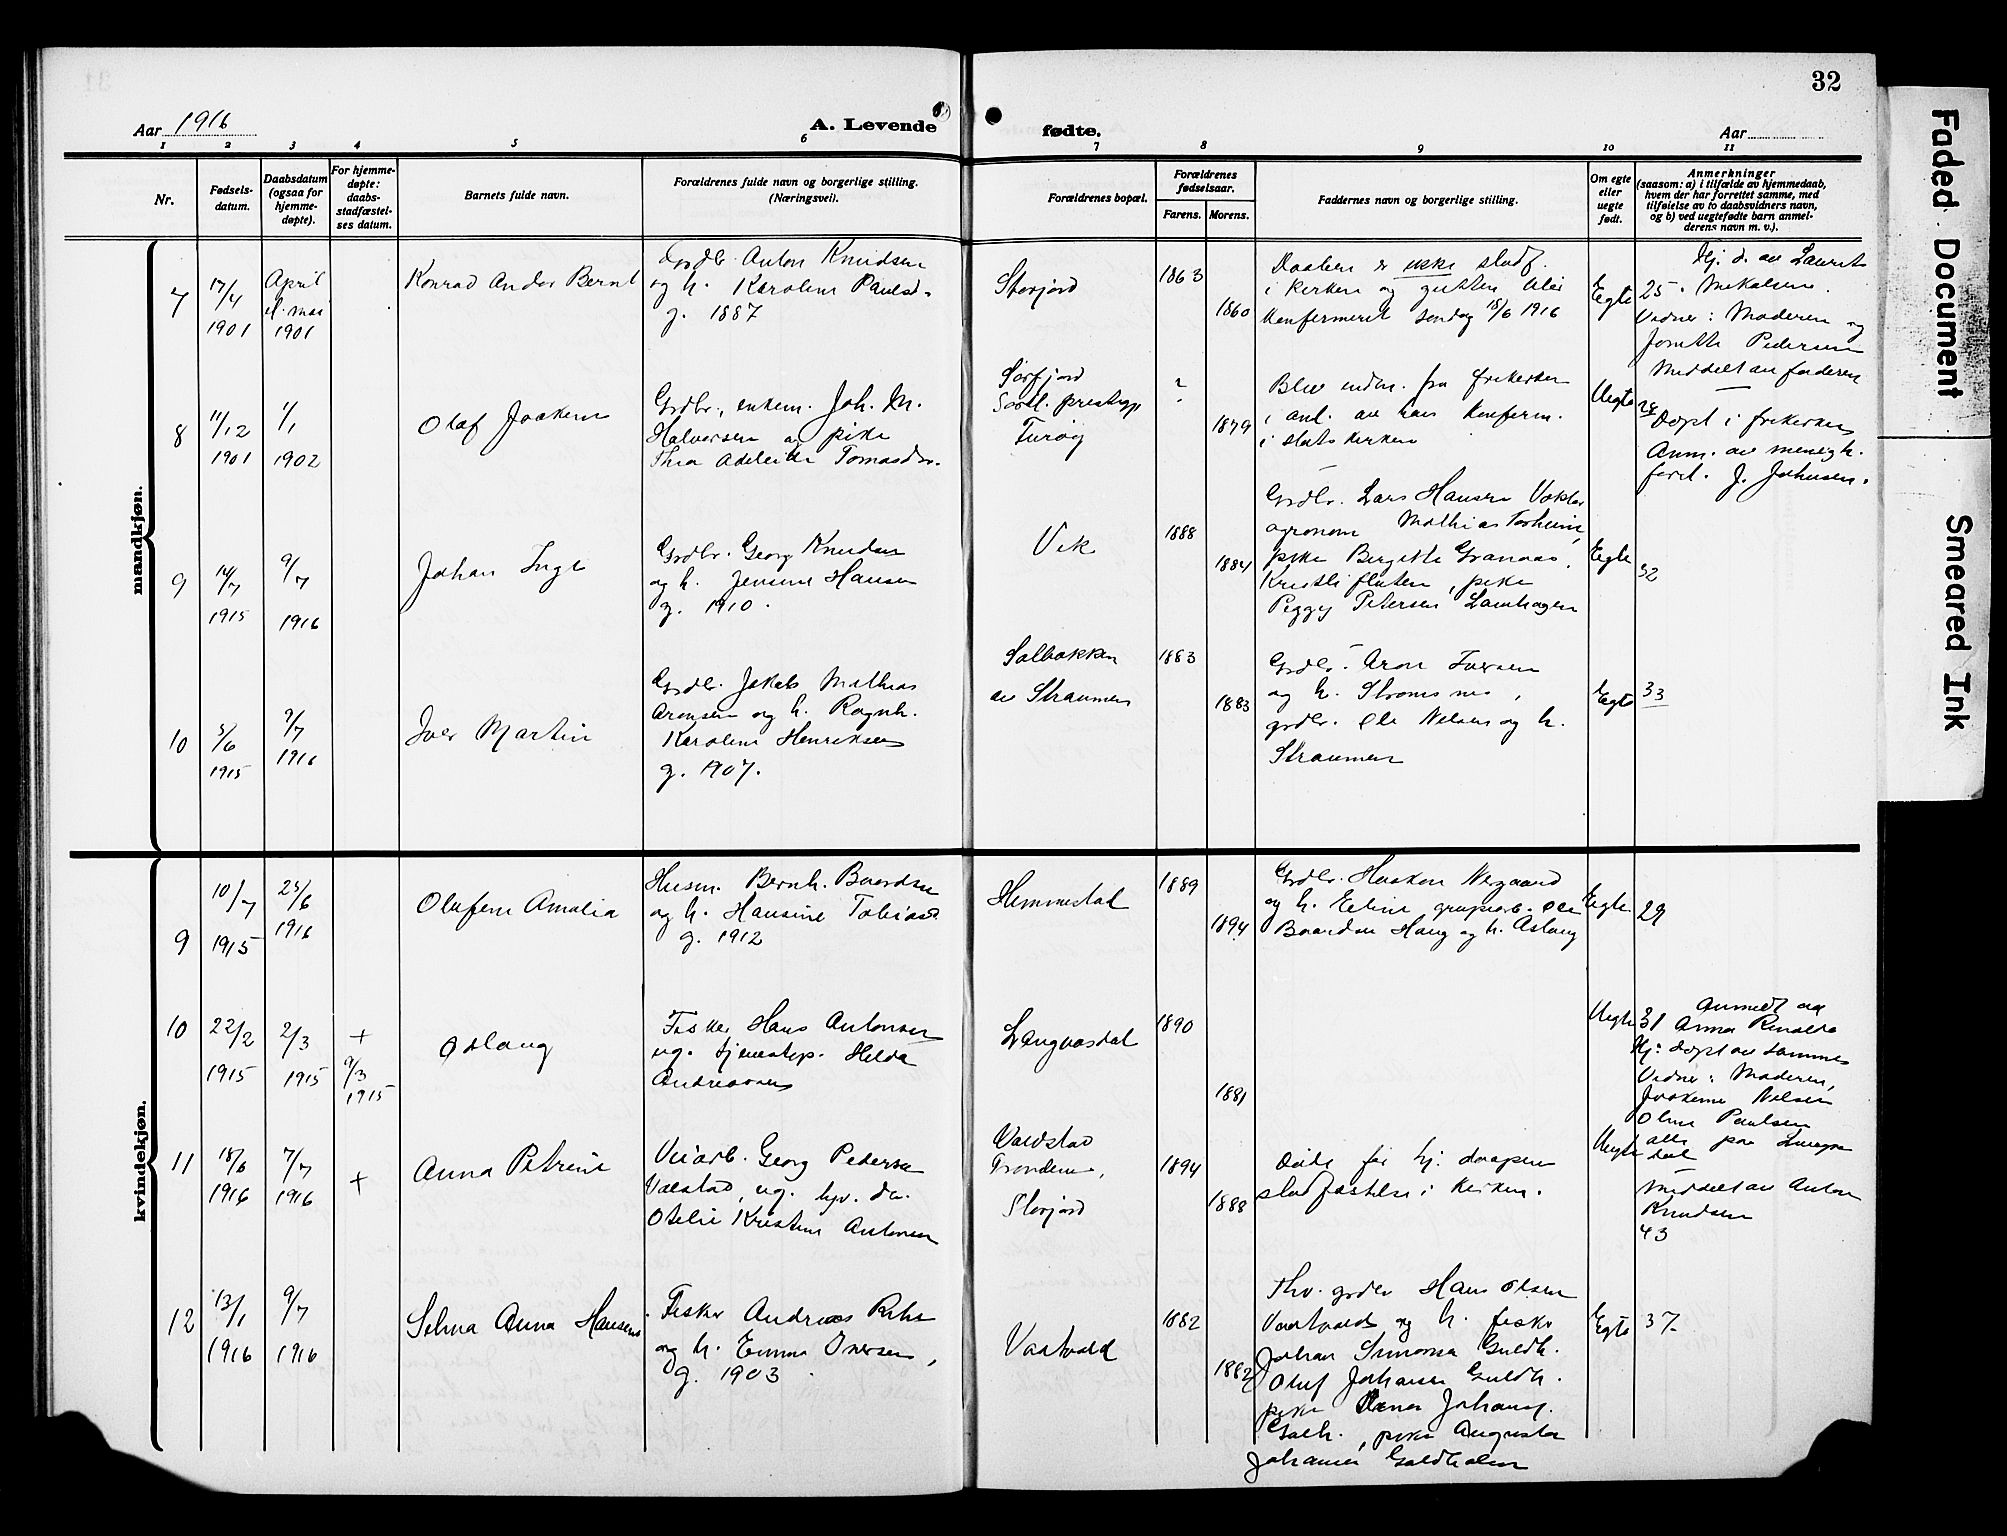 32
Aar 1916
A. Levende
fødte.
Aar
1 2 3 4 5 6 7 8 9 10 11
Nr.
Fødsels-
datum.
Daabsdatum
(ogsaa for
hjemme-
døpte).
For hjemme-
døpte:
daabs-
stadfæstel-
ses datum.
Barnets fulde navn.
Forældrenes fulde navn og borgerlige stilling.
(Næringsvei).
Forældrenes bopæl.
Forældrenes
fødselsaar.
Farens. Morens.
Faddernes navn og borgerlige stilling.
Om egte
eller
uegte
født.
Anmerkninger
(saasom: a) i tilfælde av hjemmedaab,
hvem der har forrettet samme, med
tilføielse av to daabsvidners navn,
og b) ved uegtefødte barn anmel-
derens navn m. v.).
mandkjøn.
7
17/4
1901
April
el. mai
1901
Konrad Andor Bernt
Grdbr. Anton Knudsen
og h. Karoline Paulsd.
g. 1887
Storjord
1863
1860
Daaben er ikke stadf.
i kirken og gutten blei
konfirmeret søndag 18/6 1916
Egte
25.
Hj. d. av Laurits
Mikalsen.
Vidner: Moderen og
Pedersen
Meddelt av faderen
8
11/12
1901
1/1
1902
Olaf Joakim
Grdbr., enkem. Joh. M.
Halvorsen og pike
Thea Adeleide Tomasdr.
Sørfjord
Sortl. prestegj.
?
1879
Blev indm. fra frikirken
i anl. av hans konfirm.
i statskirken
Uegte
28
Døpt i frikirken
Anm. av menigh.
forst. J. Johnsen.
9
14/7
1915
9/7
1916
Johan Inge
Grdbr. Georg Knudsen
og h. Jensine Hansen
g. 1910.
Vik
1888
1884
Grdbr. Lars Hansen
agronom Mathias
pike Bergitte Granaas,
pike
Peggy Petersen
Egte
32
10
5/6
1915
9/7
1916
Iver Martin
Grdbr. Jakob Mathias
Aronsen og h. Ragnh.
Karoline Henriksen
g. 1907.
Solbakken
av Straumen
1883
1883
Grdbr. Aron Iversen
og h. Strømsnes,
grdbr. Ole Nilsen og h.
Straumen
Egte
33
kvindekjøn.
9
10/7
1915
25/6
1916
Olufine Amalia
Husm. Bernh. Baardsen
og h. Hansine Tobiasd.
g. 1912
Hemmestad
1889
1894
Grdbr. Haakon Nergaard
og h. Eline, grubearb. Ole
Baardsen Haug og h. Aslaug
Egte
29
10
22/2
1915
2/3
1915
+
9/3
1915
Aslaug
Fisker Hans Antonsen
ug. tjenestep. Helda
Andreassen
Langvasdal
1890
1881
Uegte
31
Anmeldt av
Anna
Hj: døpt av samme
Vidner: Moderen,
Joakime Nilsen
Oline Paulsen
alle paa Langvas
dal
11
18/6
1916
7/7
1916
+
Anna Petrine
Veiarb. Georg Pedersen
ug. hpv. da.
Otelie Kristine Antonsen
Trondenes,
Storjord
1894
1888
Døde før hj. daapen
stadfæstelse i kirken.
Uegte
Meddelt av Anton
Knudsen
43
12
13/1
1916
9/7
1916
Selma Anna Hansine
Fisker Andreas
og h. Emma Iversen,
g. 1903.
Vaatvold
1882
1882
Thv. grdbr Hans Olsen
Vaatvold og h. fisker
Johan Simonsen Guldh.
Oluf Johansen Guldh.
pike Dina Johans.
Guldh., pike Augusta
Johansen Guldholm
Egte
37
Faded Document
Smeared Ink